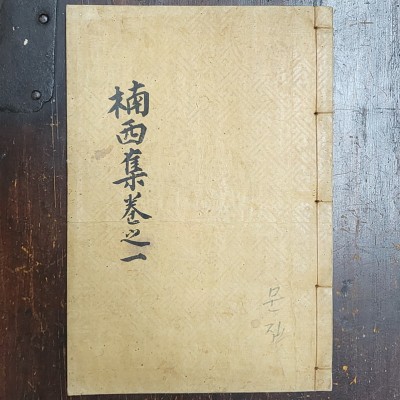 楠西集卷之一
문집